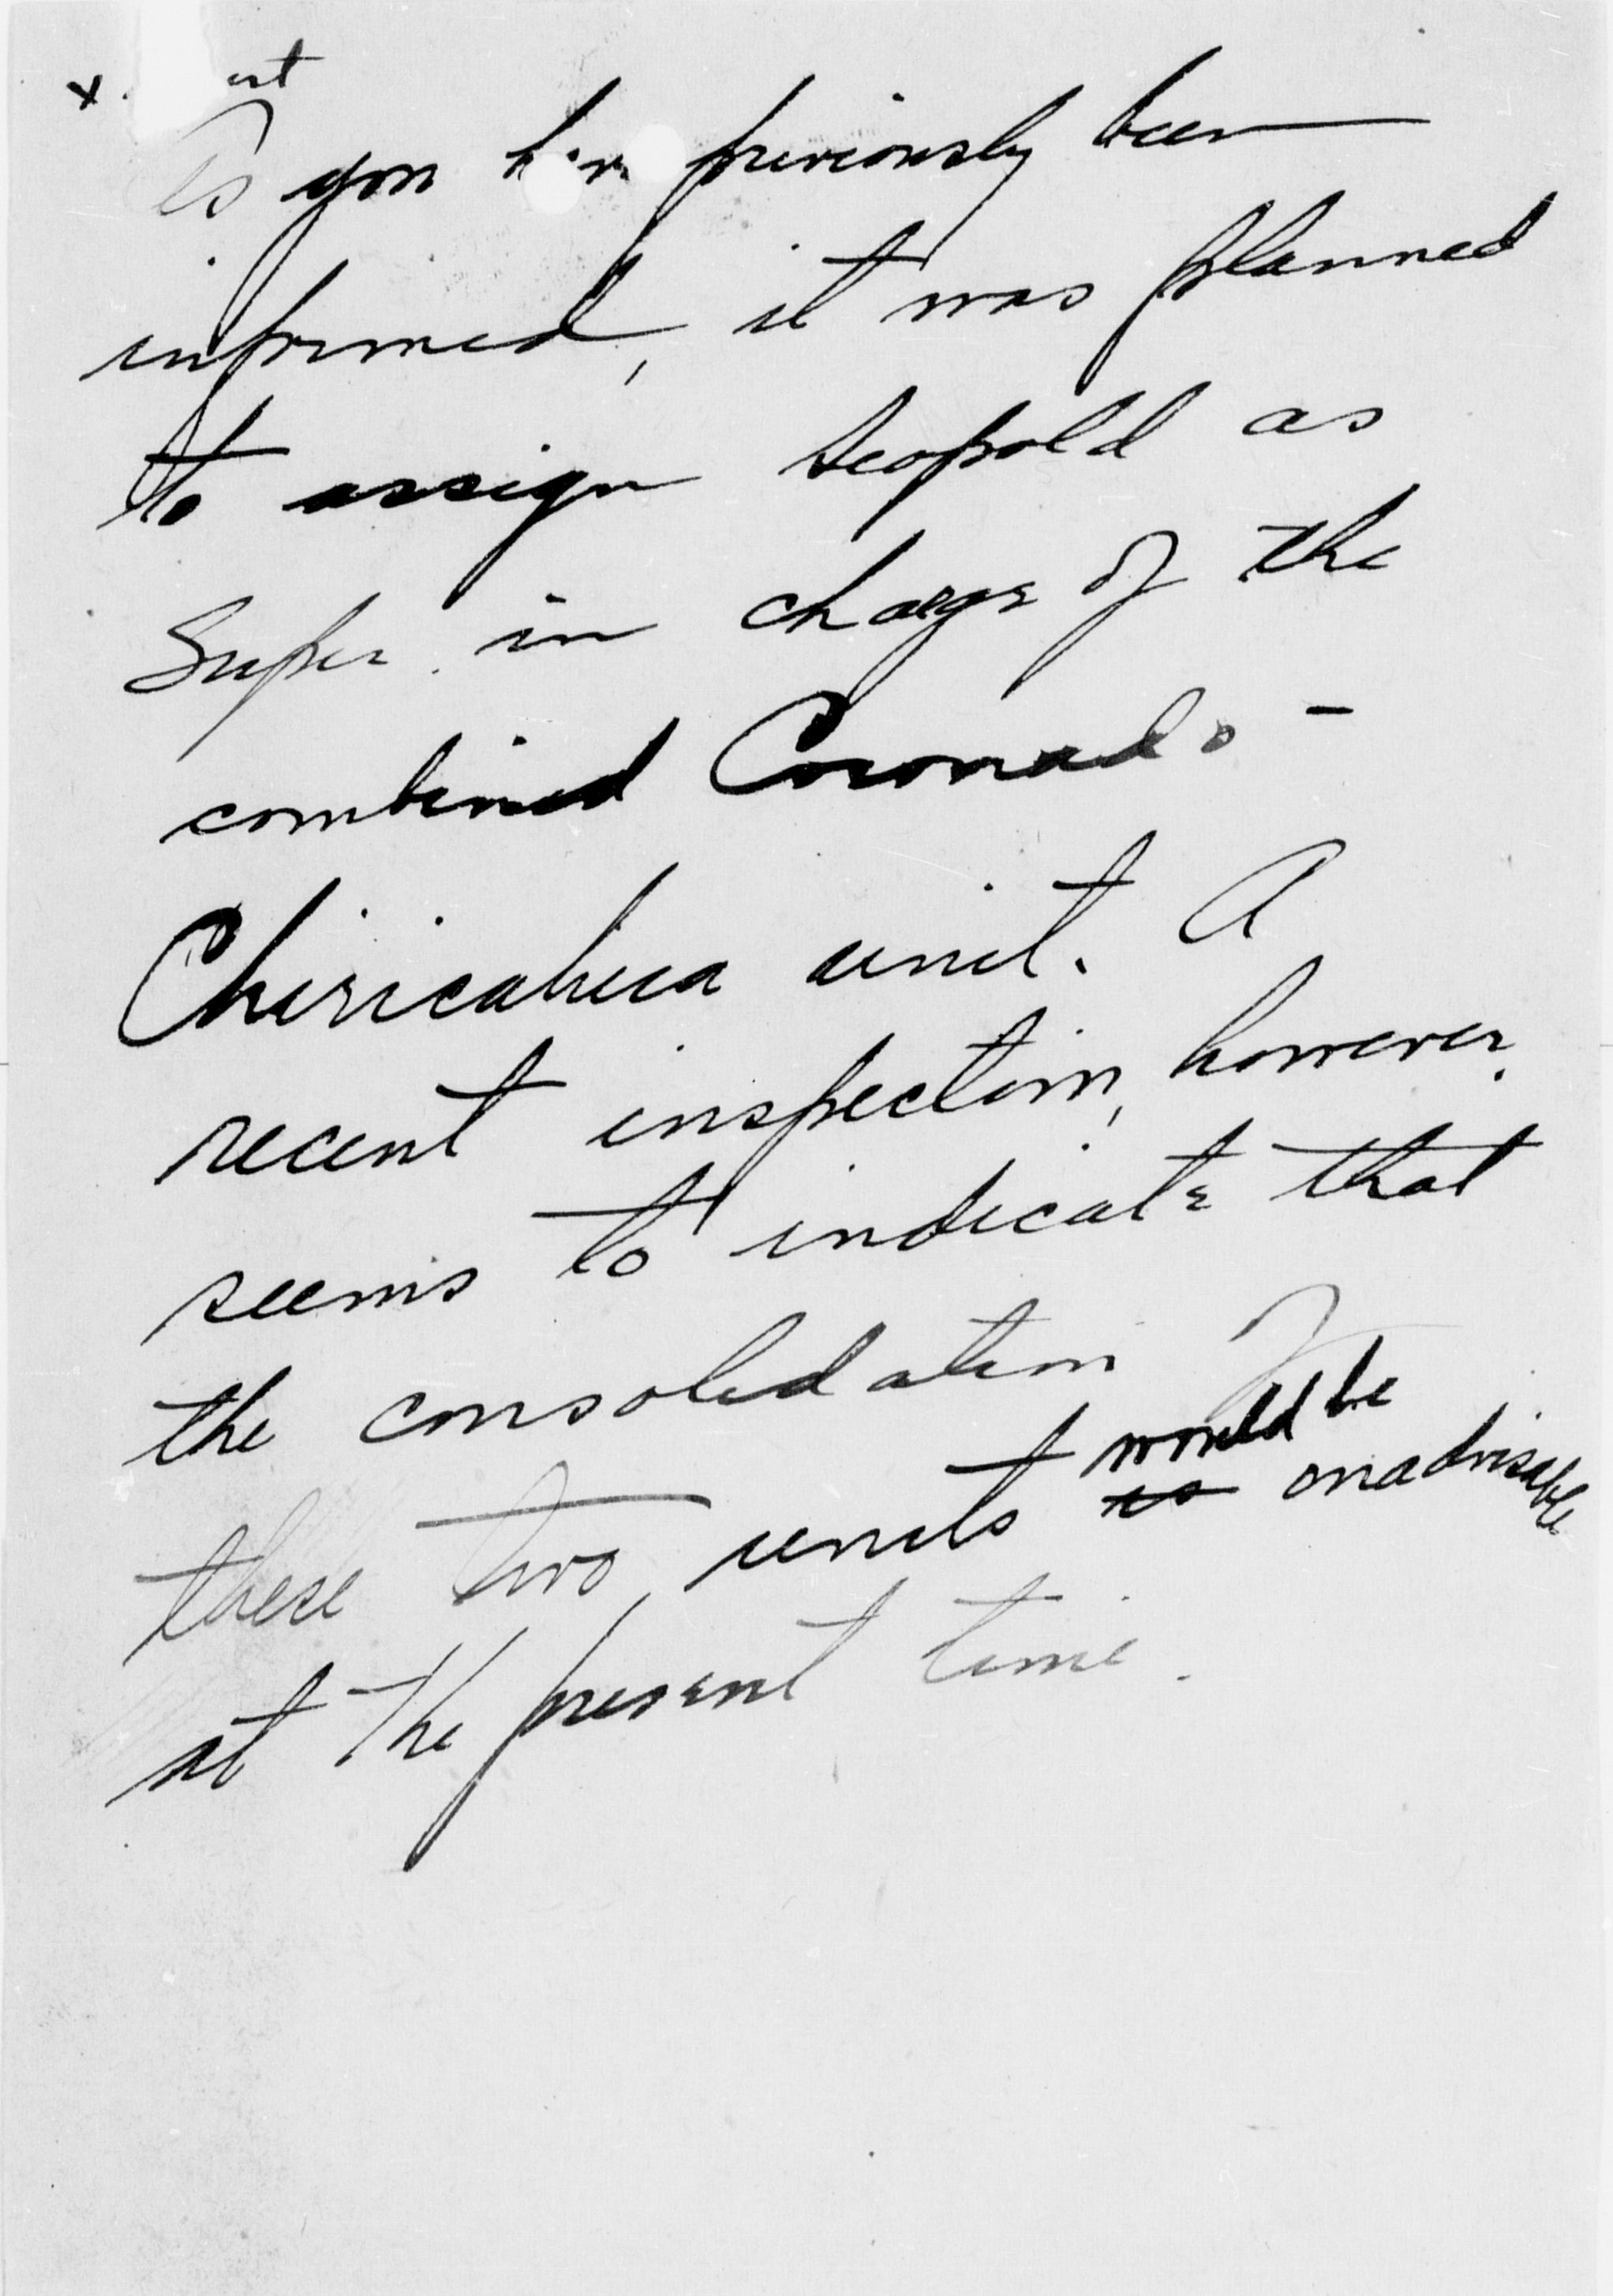 x
As you have previously been
informed, it was planned
to assign Leopold as
Super. in charge of the
combined Coronado -
Chiricahua unit. A
recent inspection, however,
seems to indicate that
the consolidation of
would be
these two units is inadvisable
at the present time.